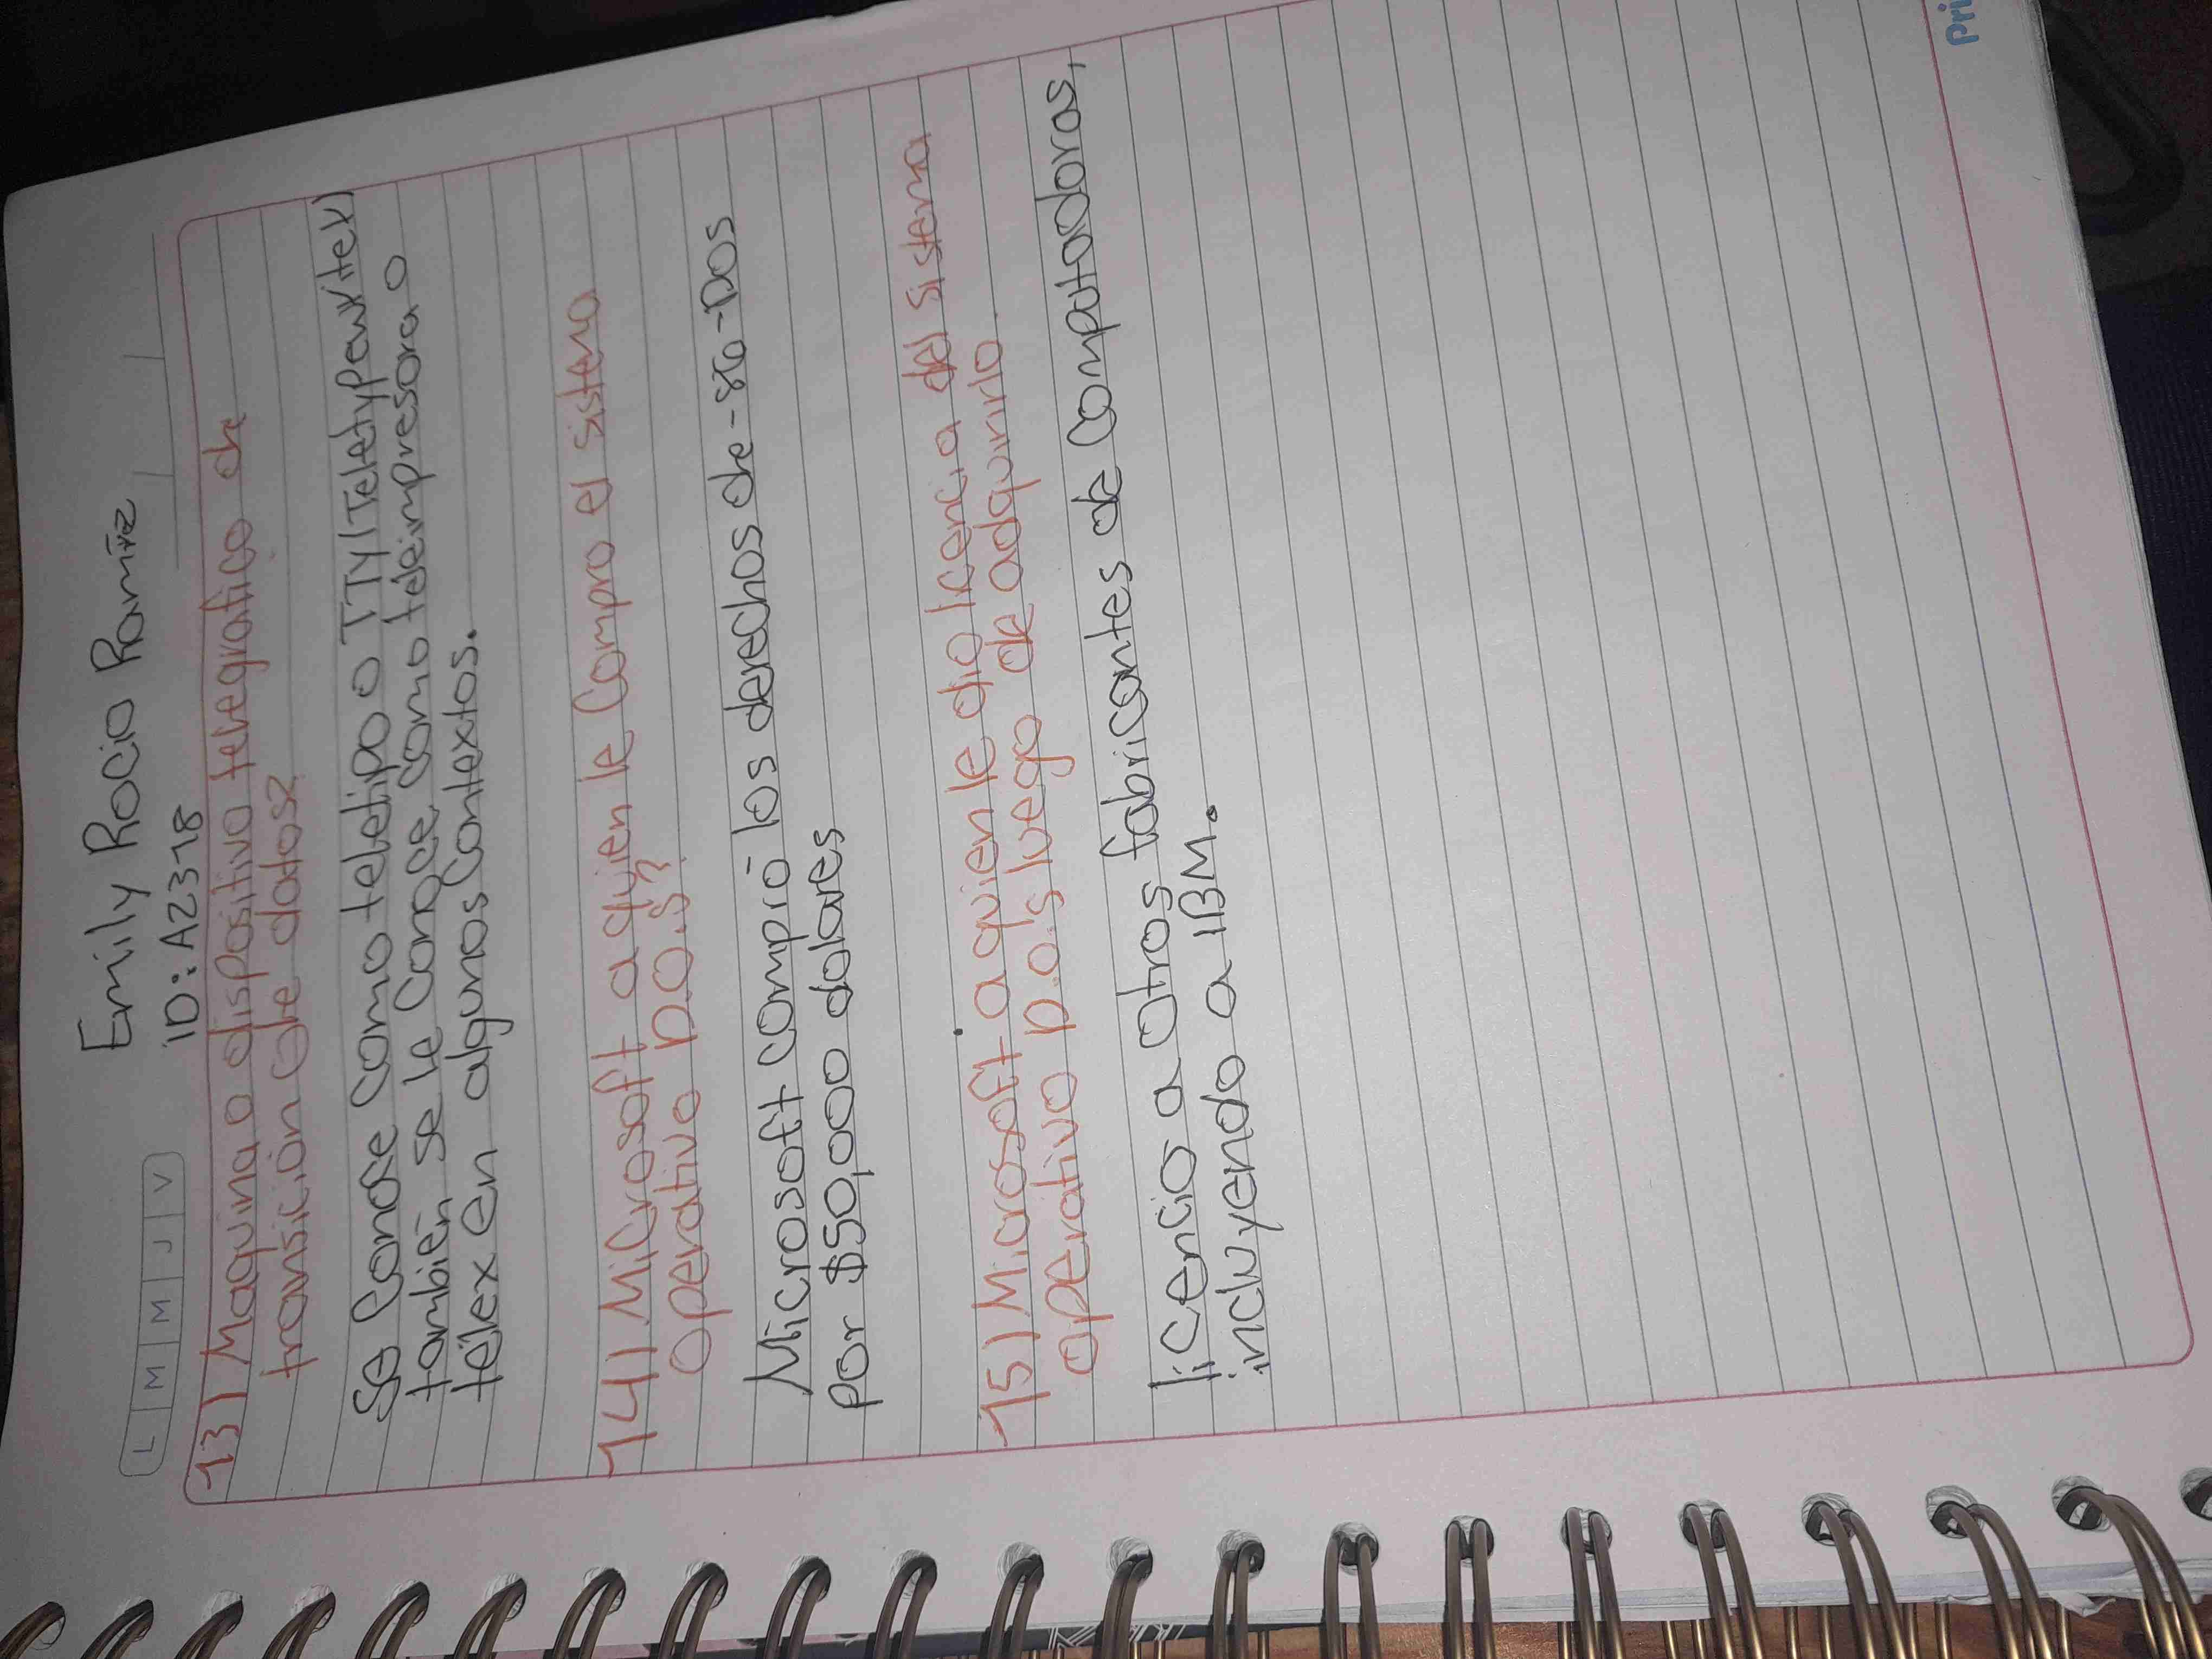 Emily Rocio Ramírez
ID: A23718
L M M J V
13) Maquina o dispositivo telegrafico de
transición de datos?
Se Conose Como teletipo o TTy (Teletypewriter)
también se le Conoce como teleimpresora o
télex en algunos Contextos.
14) Microsoft a quien le Compro el sistema
Operativo D.O.S?
Microsoft compró los derechos de - 86-DOS
por $50,000 dolares
15) Microsoft a quien le dio licencia del sistema
operativo D.O.S luego de adquirirlo.
licencio a otros fabricantes de Computadoras,
incluyendo a IBM.